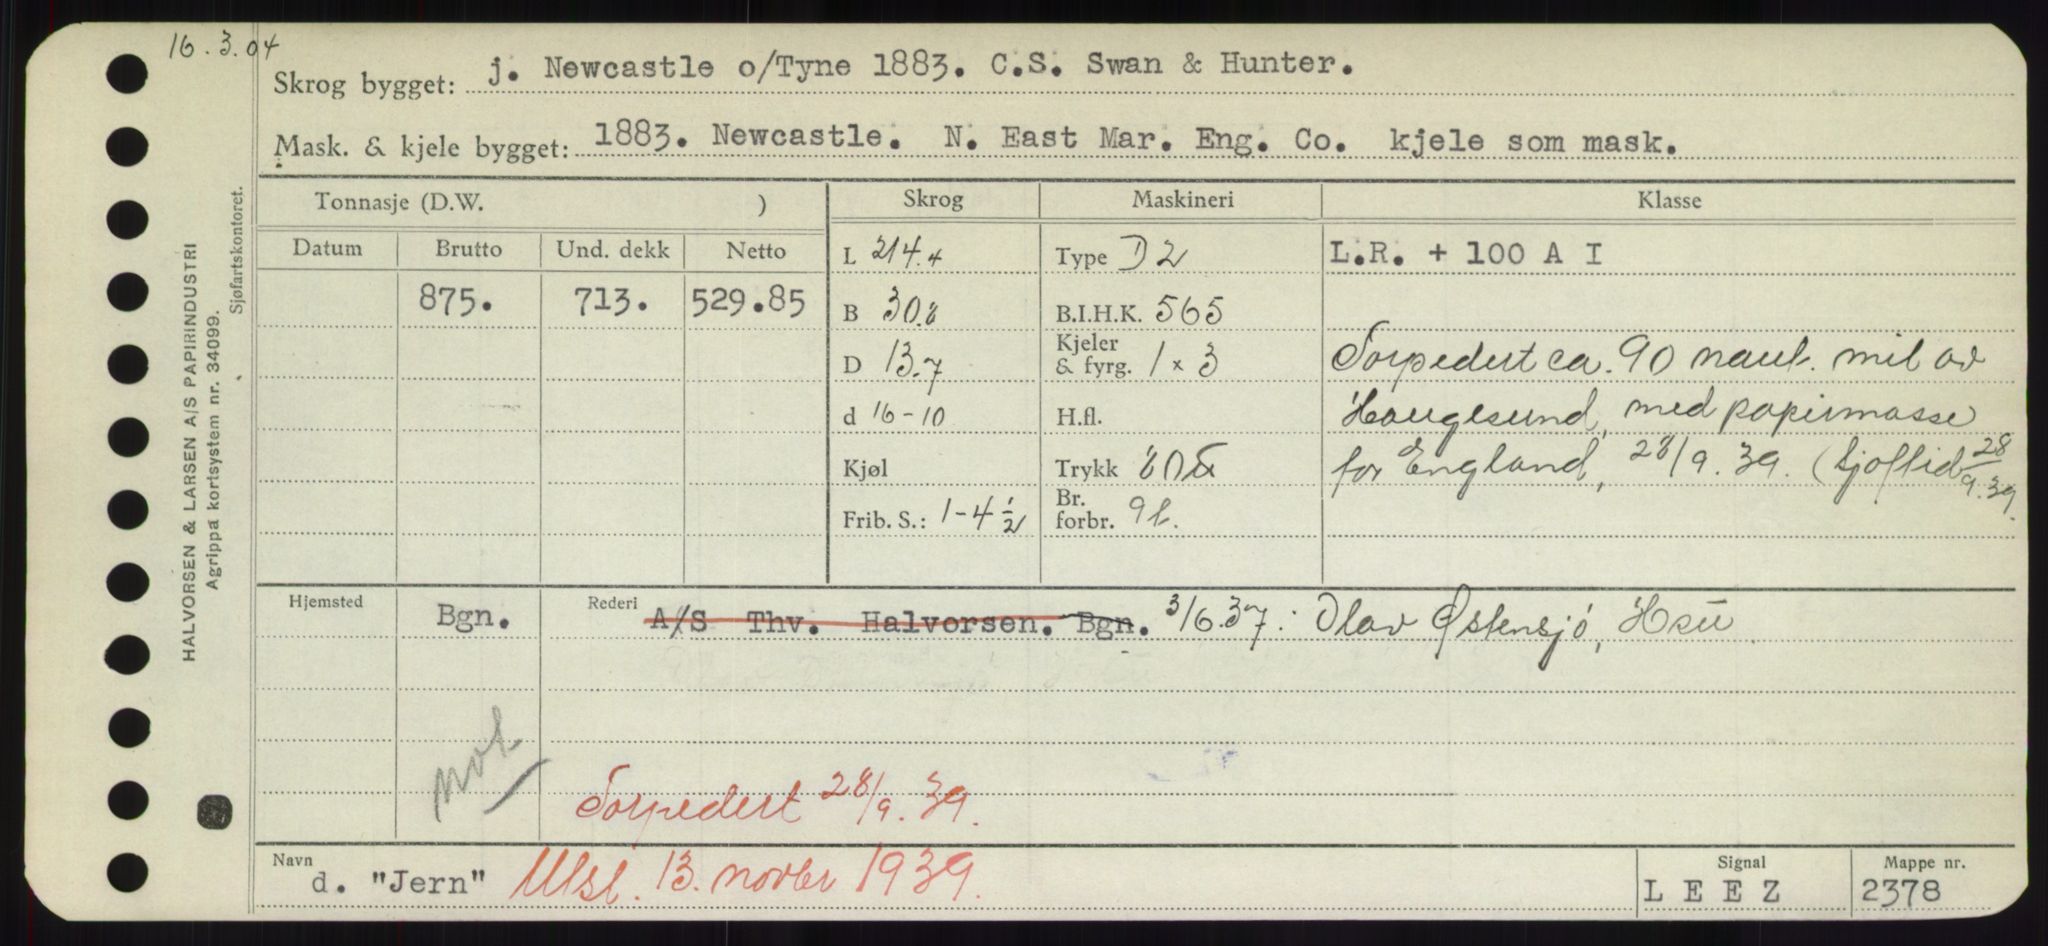 16.3.04
Skrog bygget: j. Newcastle o/Tyne 1883. C.S. Swan & Hunter.
Mask. & kjele bygget: 1883. Newcastle. N. East Mar. Eng. Co. kjele som mask.
Tonnasje (D.W. ) Skrog Maskineri Klasse
Datum Brutto Und. dekk Netto L 214.4 Type D2 L.R. + 100 A I
875. 713. 529.85 B 30.8 B.I.H.K. 565
D 13.7 Kjeler & fyrg. 1 x 3 Torpedert ca. 90 naut. mil av
d 16-10 H.fl. Haugesund, med papirmasse
Kjøl Trykk 80 for England, 28/9.39. (Sjøftid 28/9.39.
Frib. S.: 1-4 1/2 Br. forbr. 9 t.
Hjemsted Bgn. Rederi A/S Thv. Halvorsen. Bgn. 3/6.37: Olav Østensjö, Hsu.
not
Torpedert 28/9.39.
Navn d. "Jern" Utsl. 13. novbr 1939. Signal L E E Z Mappe nr. 2378
HALVORSEN & LARSEN A/S PAPIRINDUSTRI
Agrippa kortsystem nr. 34099.
Sjøfartskontoret.